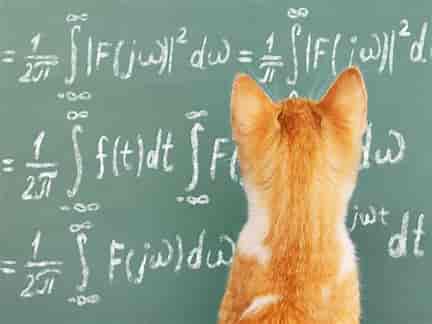 = 1/2π ∫_{-∞}^{∞} |F(jω)|² dω = 1/π ∫^{∞} |F(jω)|² d
= 1/2π ∫_{-∞}^{∞} f(t)dt ∫_{-∞}^{∞} F dω
= 1/2π ∫_{-∞}^{∞} F(jω)dω jωt dt